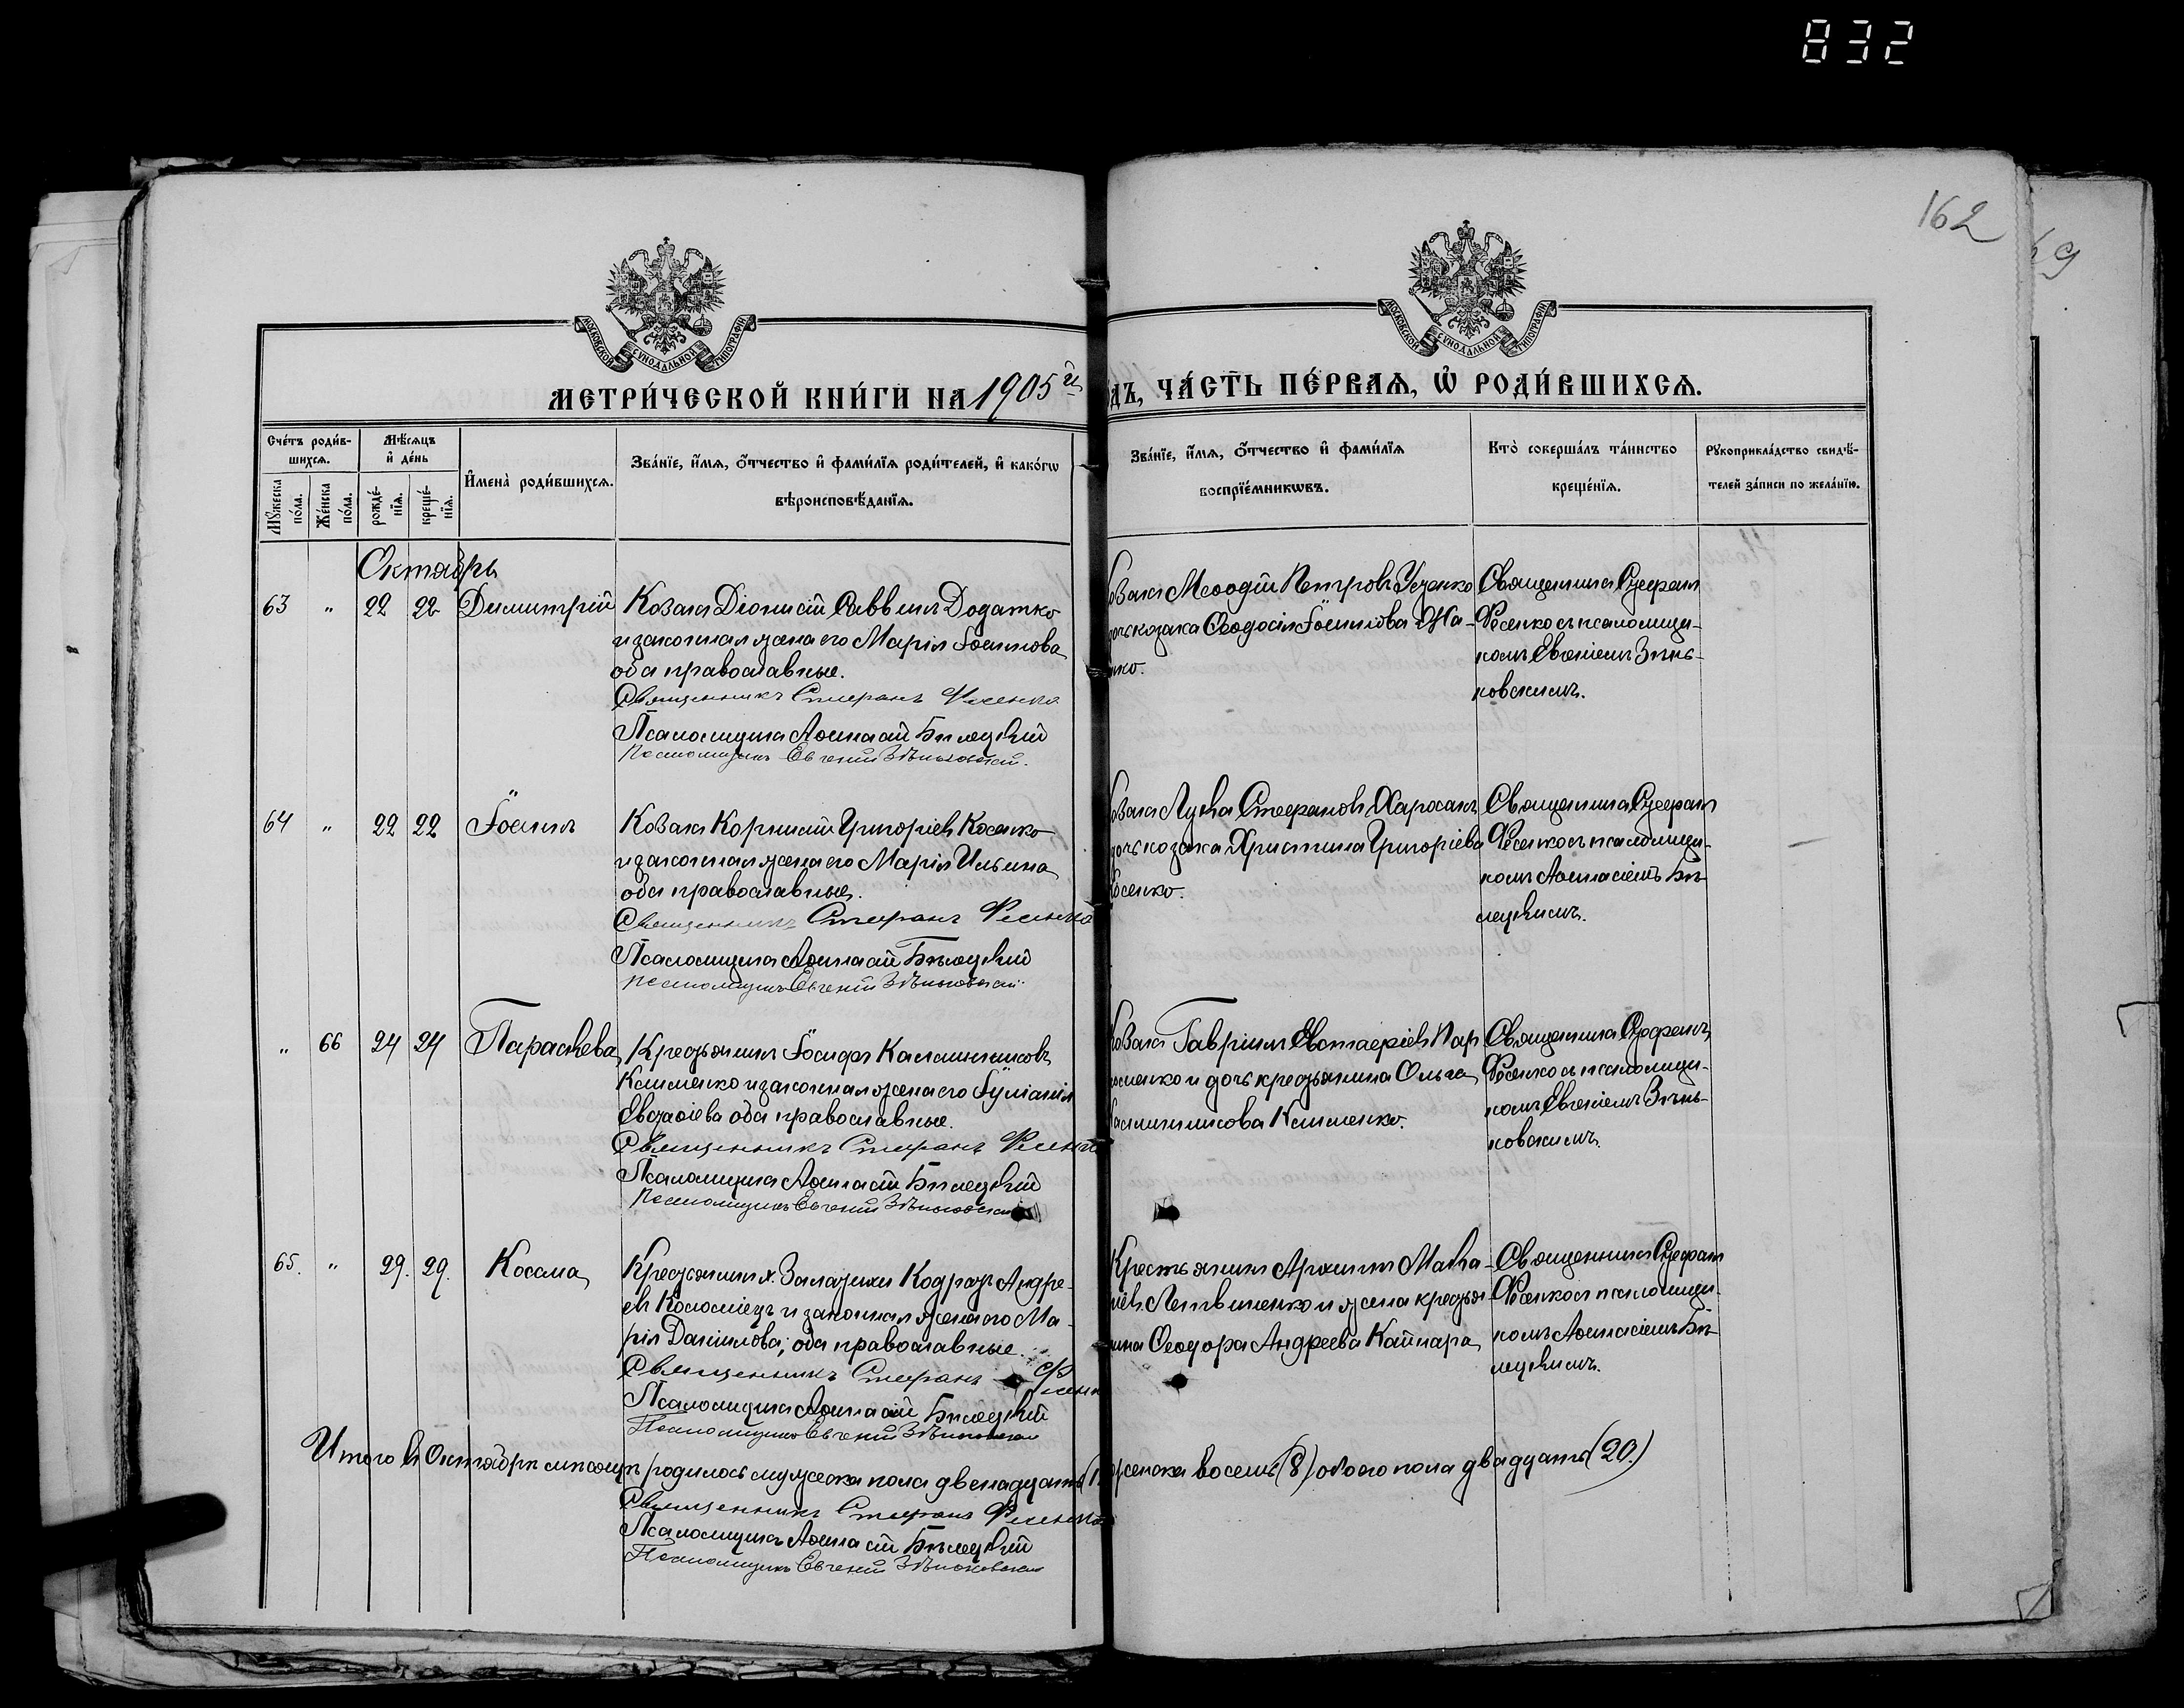 832
162
69
МОСКОВСКОЙ СѴНОДАЛЬНОЙ ТИПОГРАФІИ
МОСКОВСКОЙ СѴНОДАЛЬНОЙ ТИПОГРАФІИ
МЕТРИ́ЧЕСКОЙ КНИ́ГИ НА 1905й
ДЪ, ЧА́СТЬ ПЕ́РВАѦ, Ѡ҆ РОДИ́ВШИХСѦ.
Сче́тъ роди́в-
шихсѧ.
Мѣ́сѧцъ
и҆ де́нь
И҆мена̀ роди́вшихсѧ.
Зва́нїе, и҆́мѧ, ѻ҆́тчество и҆ фами́лїѧ роди́телей, и҆ како́гѡ
вѣроисповѣ́данїѧ.
Мꙋ́жеска по́ла.
Же́нска по́ла.
рожде́нїѧ.
креще́нїѧ.
Зва́нїе, и҆́мѧ, ѻ҆́тчество и҆ фами́лїѧ
воспрїе́мникѡвъ.
Кто̀ соверша́лъ та́инство
креще́нїѧ.
Рꙋкоприкла́дство свидѣ́-
телей за́писи по жела́нїю.
Октябрь
63 " 22 22 Димитрій
Козакъ Діонисій Саввинъ Додатко
и законная жена его Марія Іоаннова
оба православные.
Священникъ Стефанъ Фесенко
Псаломщикъ Аѳанасій Бѣлецкій
Псаломщикъ Евгеній Зѣньковскій.
озакъ Меѳодій Петровъ Усенко
дочь козака Ѳеодосія Іоаннова Жа-
нко.
Священникъ Стефанъ
Фесенко съ псаломщи-
комъ Евгеніемъ Зѣнь-
ковскимъ.
64 " 22 22 Іоаннъ
Козакъ Корнилій Григоріевъ Косенко
и законная жена его Марія Ильина
оба православные.
Священникъ Стефанъ Фесенко
Псаломщикъ Аѳанасій Бѣлецкій
Псаломщикъ Евгеній Зѣньковскій
озакъ Лука Стефановъ
дочь козака Христина Григоріева
осенко.
Священникъ Стефанъ
Фесенко съ псаломщи-
комъ Аѳанасіемъ Бѣ-
лецкимъ.
" 66 24 24 Параскева
Крестьянинъ Іосифъ Каллиниковъ
Клименко и законная жена его Іуліанія
Евстафіева оба православные.
Священникъ Стефанъ Фесенко
Псаломщикъ Аѳанасій Бѣлецкій
Псаломщикъ Евгеній Зѣньковскій
озакъ Гавріилъ Евстафіевъ Пар
оменко и дочь крестьянина Ольга
аллиникова Клименко.
Священникъ Стефанъ
Фесенко съ псаломщи-
комъ Евгеніемъ Зѣнь-
ковскимъ.
65. " 29. 29. Косма
Крестьянинъ х. Кодратъ Андре-
евъ Коломіецъ и законная жена его Ма-
рія Даніилова; оба православные.
Священникъ Стефанъ Фесенко
Псаломщикъ Аѳанасій Бѣлецкій
Псаломщикъ Евгеній Зѣньковскій
Крестьянинъ
Литвиненко и жена крестья-
нина Ѳеодора Андреева
Священникъ Стефанъ
Фесенко съ псаломщи-
комъ Аѳанасіемъ Бѣ-
лецкимъ.
Итого въ Октябрѣ мѣсяцѣ родилось мужеска пола двенадцать женска восемь (8) обоего пола двадцать (20.)
Священникъ Стефанъ Фесенко
Псаломщикъ Аѳанасій Бѣлецкій
Псаломщикъ Евгеній Зѣньковскій